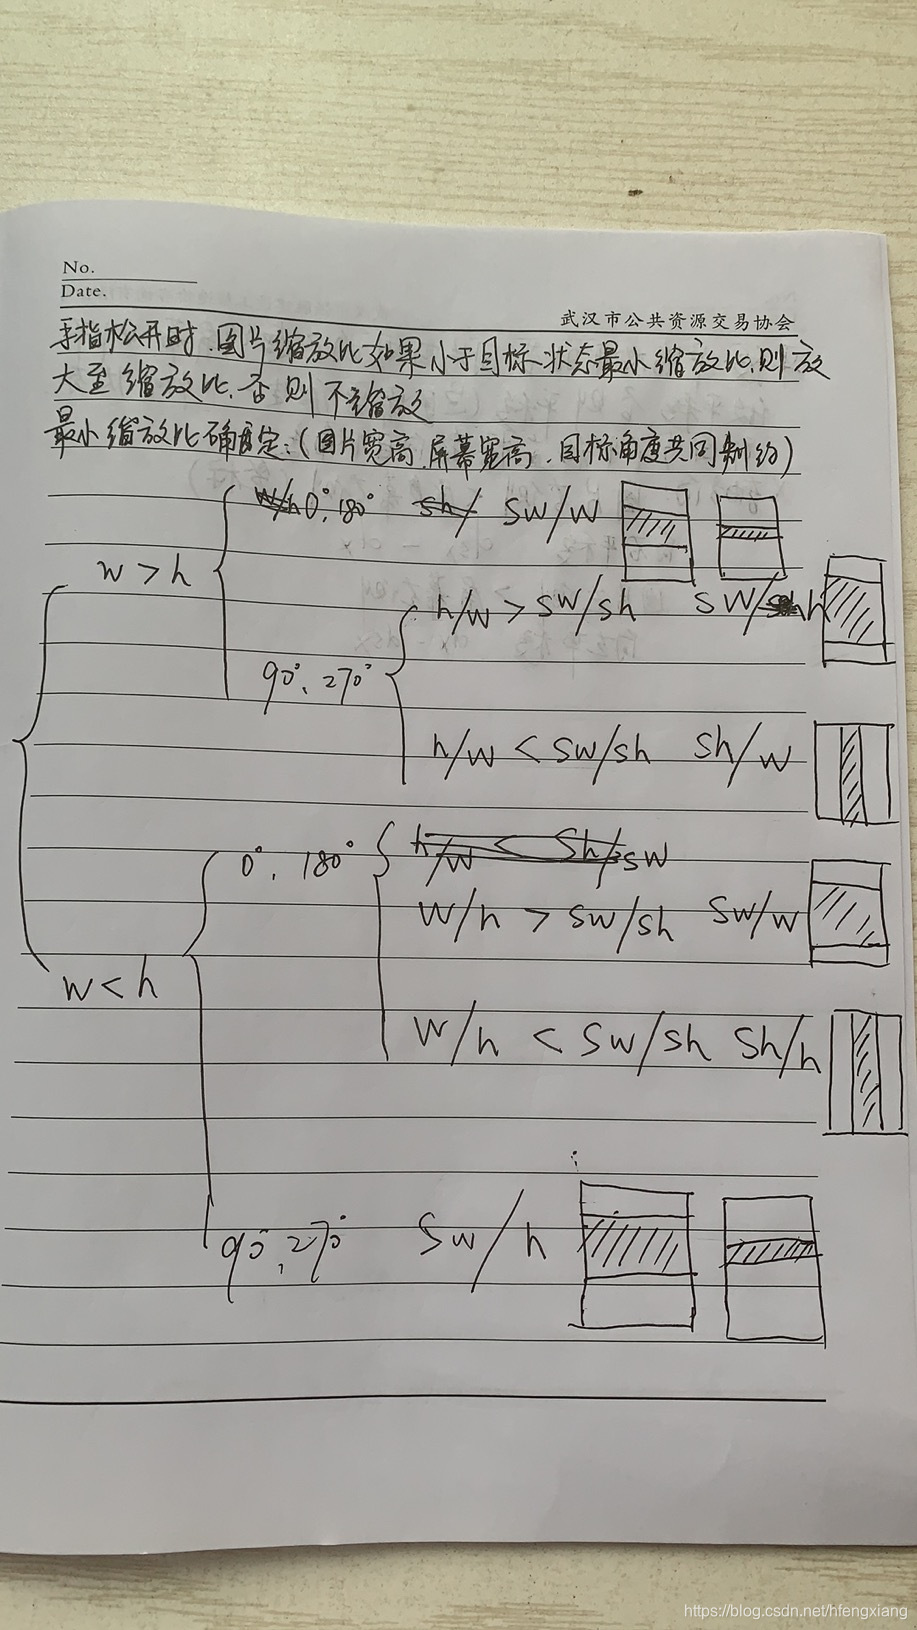 No.
Date.
武汉市公共资源交易协会
手指松开时.图片缩放比如果小于目标状态最小缩放比,则放
大至缩放比.否则不缩放
最小缩放比确定:(图片宽高.屏幕宽高.目标角度共同制约)
w>h
0°.180° sw/w
90°、270°
h/w > sw/sh sw/h
h/w < sw/sh sh/w
w<h
0°、180°
w/h > sw/sh sw/w
w/h < sw/sh sh/h
90°、270° sw/h
https://blog.csdn.net/hfengxiang